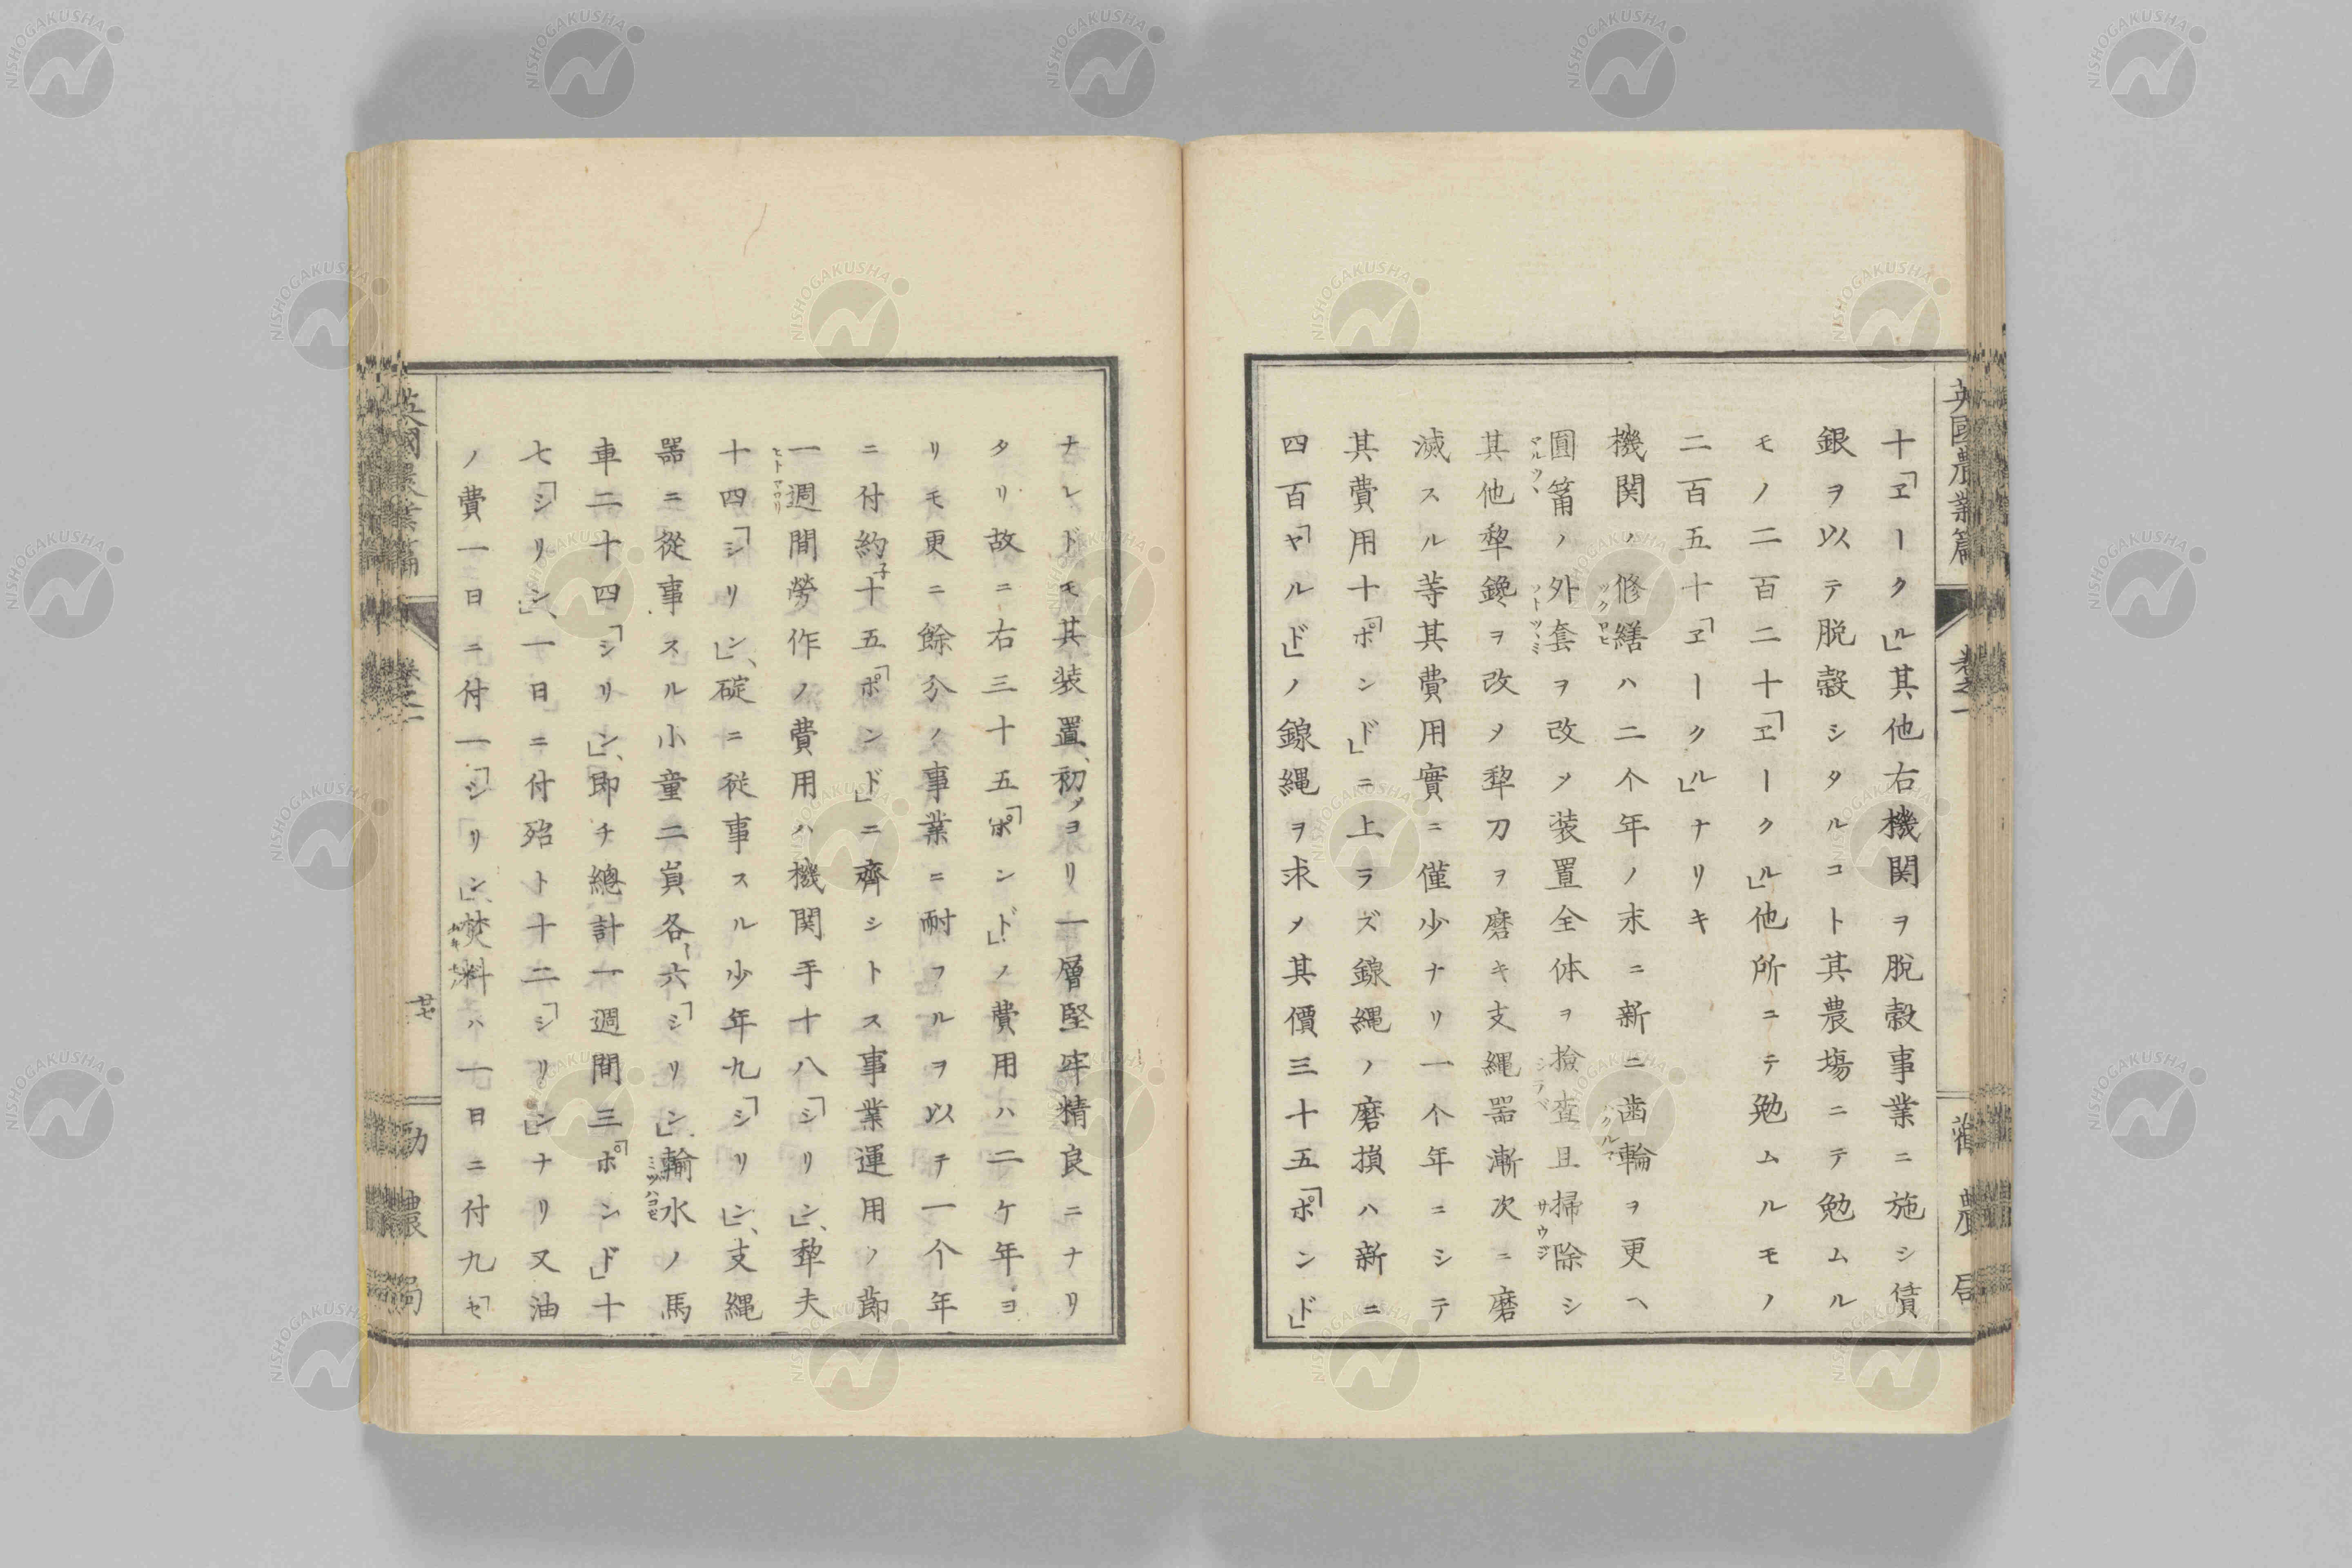 英國農業篇 卷之一 勸農局
十「ヱークル」其他右機関ヲ脱穀事業ニ施シ賃
銀ヲ以テ脱穀シタルコト其農塲ニテ勉ムル
モノ二百二十「ヱークル」他所ニテ勉ムルモノ
二百五十「ヱークル」ナリキ
機関ノ修繕ハ二个年ノ末ニ新ニ齒輪ヲ更ヘ
圓筩ノ外套ヲ改メ装置全体ヲ撿查且掃除シ
其他犂鑱ヲ改メ犂刀ヲ磨キ支繩器漸次ニ磨
滅スル等其費用實ニ僅少ナリ一个年ニシテ
其費用十「ポンド」ニ上ラズ線縄ノ磨損ハ新ニ
四百「ヤルド」ノ線縄ヲ求メ其價三十五「ポンド」
ナレドモ其装置、初メヨリ一層堅牢精良ニナリ
タリ故ニ右三十五「ポンド」ノ費用ハ二ケ年ヨ
リモ更ニ餘分ノ事業ニ耐フルヲ以テ一个年
ニ付約子十五「ポンド」ニ齊シトス事業運用ノ節
一週間勞作ノ費用ハ機関手十八「シリン」、犂夫
十四「シリン」、碇ニ從事スル少年九「シリン」、支縄
器ニ從事スル小童二員各〻六「シリン」、輸水ノ馬
車二十四「シリン」、即チ總計一週間三「ポンド」十
七「シリン」、一日ニ付殆ト十二「シリン」ナリ又油
ノ費一日ニ付一「シリン」、焚料ハ一日ニ付九「セ
英國農業篇 卷之一 廿七 勸農局
NISHOGAKUSHA